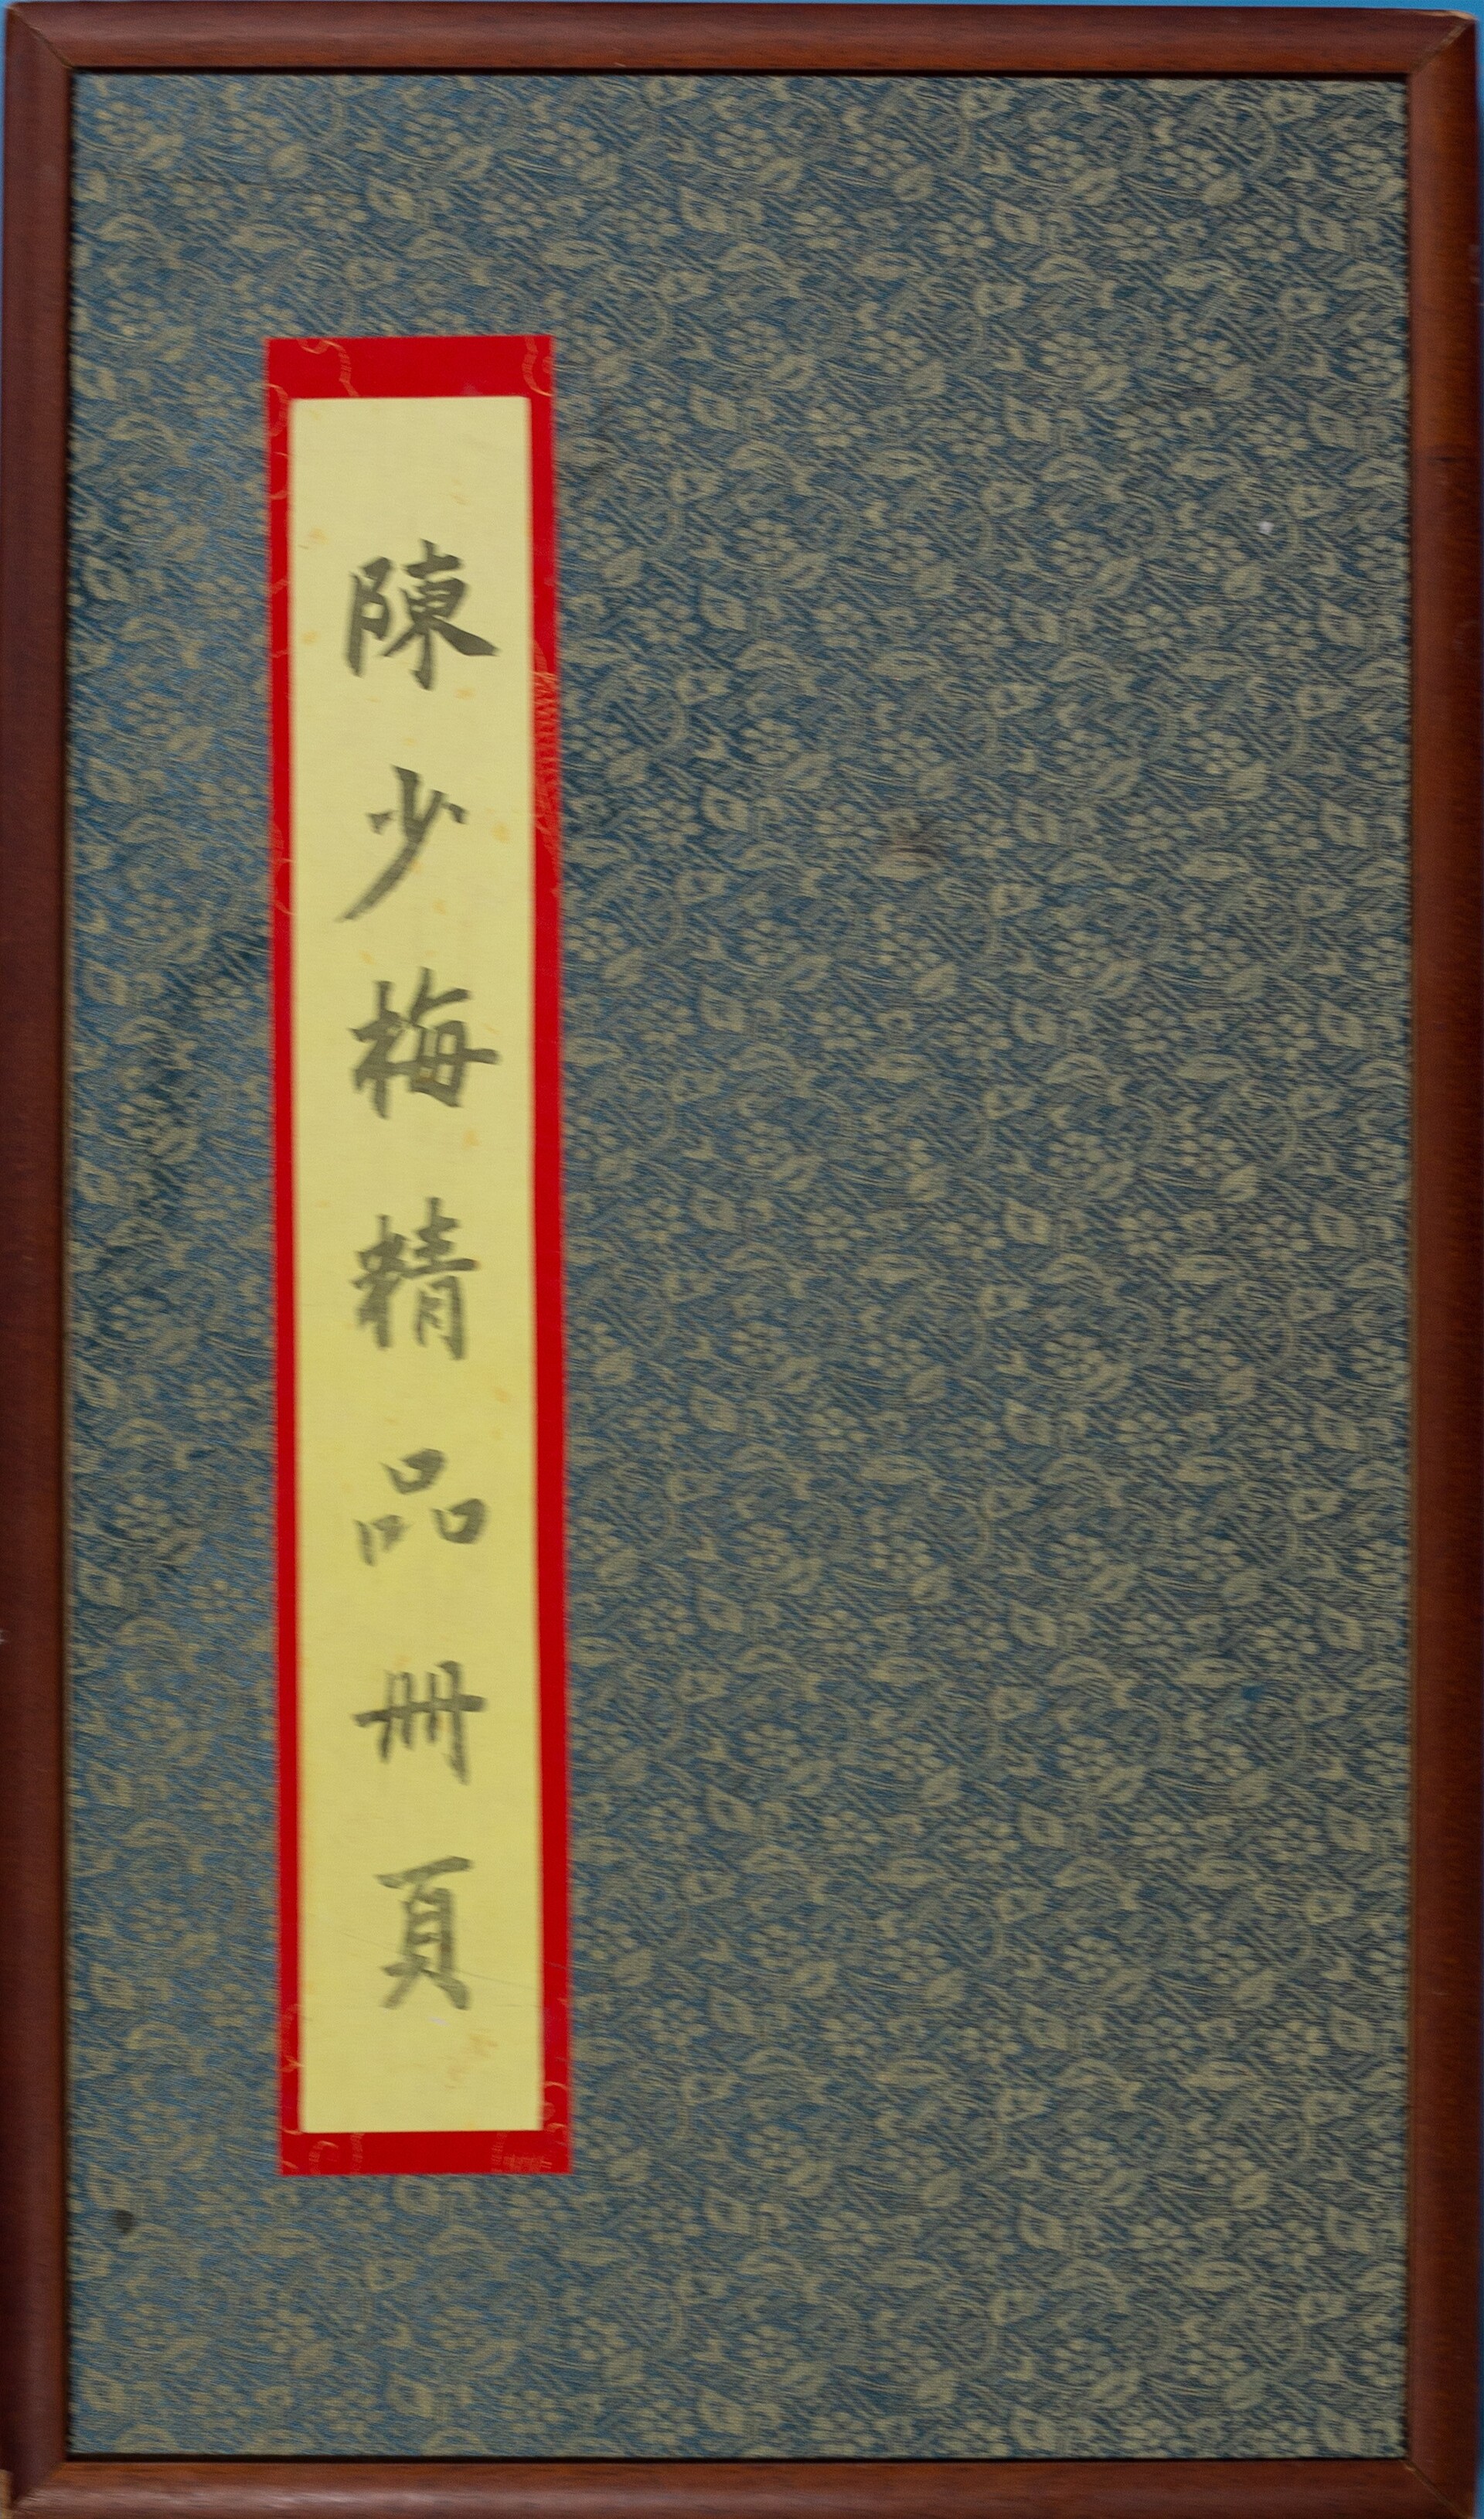 陳少梅精品冊頁